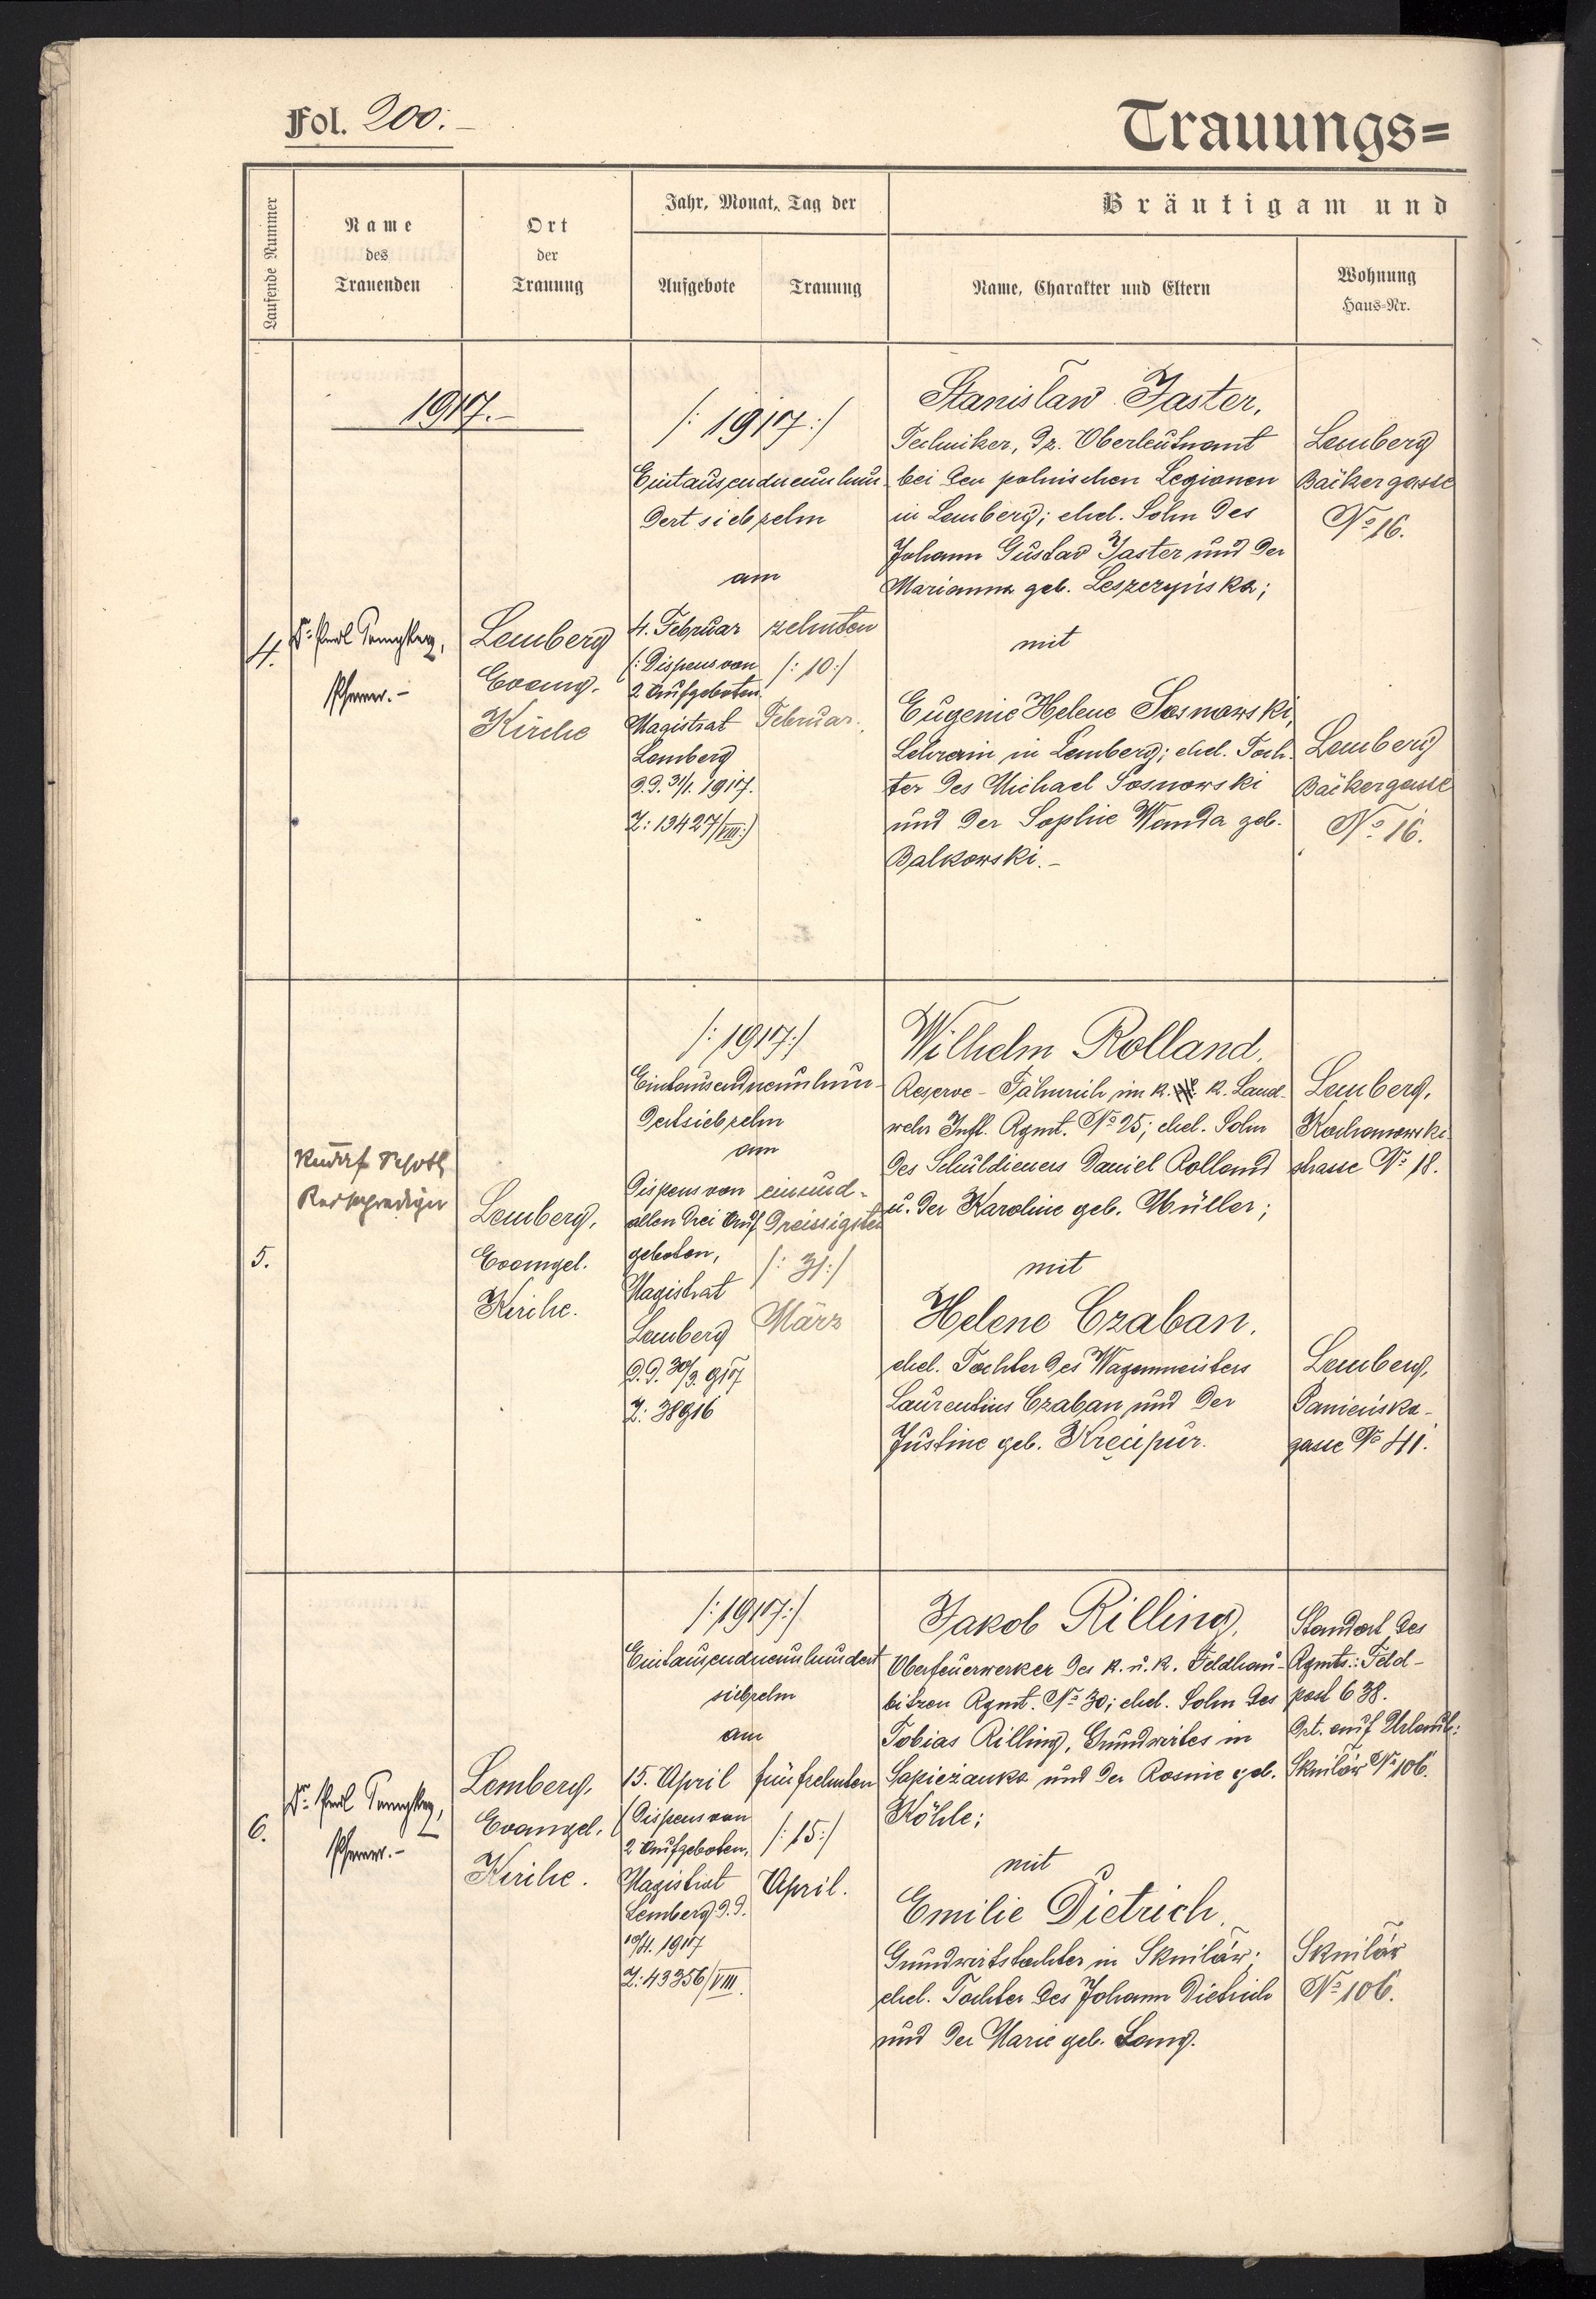 Fol. 200.-
Trauungs=
Laufende Nummer
Name
des
Trauenden
Ort
der
Trauung
Jahr, Monat, Tag der
Aufgebote
Trauung
Bräutigam und
Name, Charakter und Eltern
Wohnung
Haus-Nr.
1917.-
4.
Pfarrer.-
Lemberg
Evang.
Kirche
/: 1917 :/
Eintausendneunhun-
dertsiebzehn
am
4. Februar
/: Dispens von
2 Aufgeboten.
Magistrat
Lemberg
d.d. 31/1. 1917.
Z: 13427/VIII:)
zehnten
/: 10 :/
Februar.
Stanislaw Jaster,
Techniker, dz. Oberleutnant
bei den polnischen Legionen
in Lemberg; ehel. Sohn des
Johann Gustav Jaster und der
Marianna geb. Leszczyńska;
mit
Eugenie Helene Sosnowski,
Lehrerin in Lemberg; ehel. Toch-
ter des Michael Sosnowski
und der Sophie Wanda geb.
Balkowski.-
Lemberg
Bäckergasse
No 16.
Lemberg
Bäckergasse
No 16.
5.
Rudolf
Lemberg,
Evangel.
Kirche.
/: 1917 :/
Eintausendneunhun-
dertsiebzehn
am
Dispens von
allen drei Auf
geboten,
Magistrat
Lemberg
d.d. 30/3. 917
Z: 38916
einund-
dreissigsten
/: 31 :/
März
Wilhelm Rolland,
Reserve-Fähnrich im k. k. Land-
wehr Inft. Rgmt. No 25; ehel. Sohn
des Schuldieners Daniel Rolland
u. der Karoline geb. Müller;
mit
Helene Czaban,
ehel. Tochter des Wagenmeisters
Laurentius Czaban und der
Justine geb. Kręcipur.
Lemberg,
Kochanowski-
strasse No 18.
Lemberg,
Panieńska-
gasse No 41.
6.
Pfarrer.-
Lemberg,
Evangel.
Kirche.
/: 1917 :/
Eintausendneunhundert
siebzehn
am
15. April
(Dispens von
2 Aufgeboten,
Magistrat
Lemberg d.d.
10/4. 1917
Z: 43356/VIII.
fünfzehnten
/: 15 :/
April.
Jakob Rilling,
Oberfeuerwerker des k. u. k. Feldhau-
bitzen Rgmt. No 30; ehel. Sohn des
Tobias Rilling, Grundwirtes in
Sapieżanka und der Rosine geb.
Köhle;
mit
Emilie Dietrich,
Grundwirtstochter in Skniłów;
ehel. Tochter des Johann Dietrich
und der Marie geb. Lang.
Standort des
Rgmts.: Feld-
post 638.
dzt. auf Urlaub:
Skniłów No 106.
Skniłów
No 106.